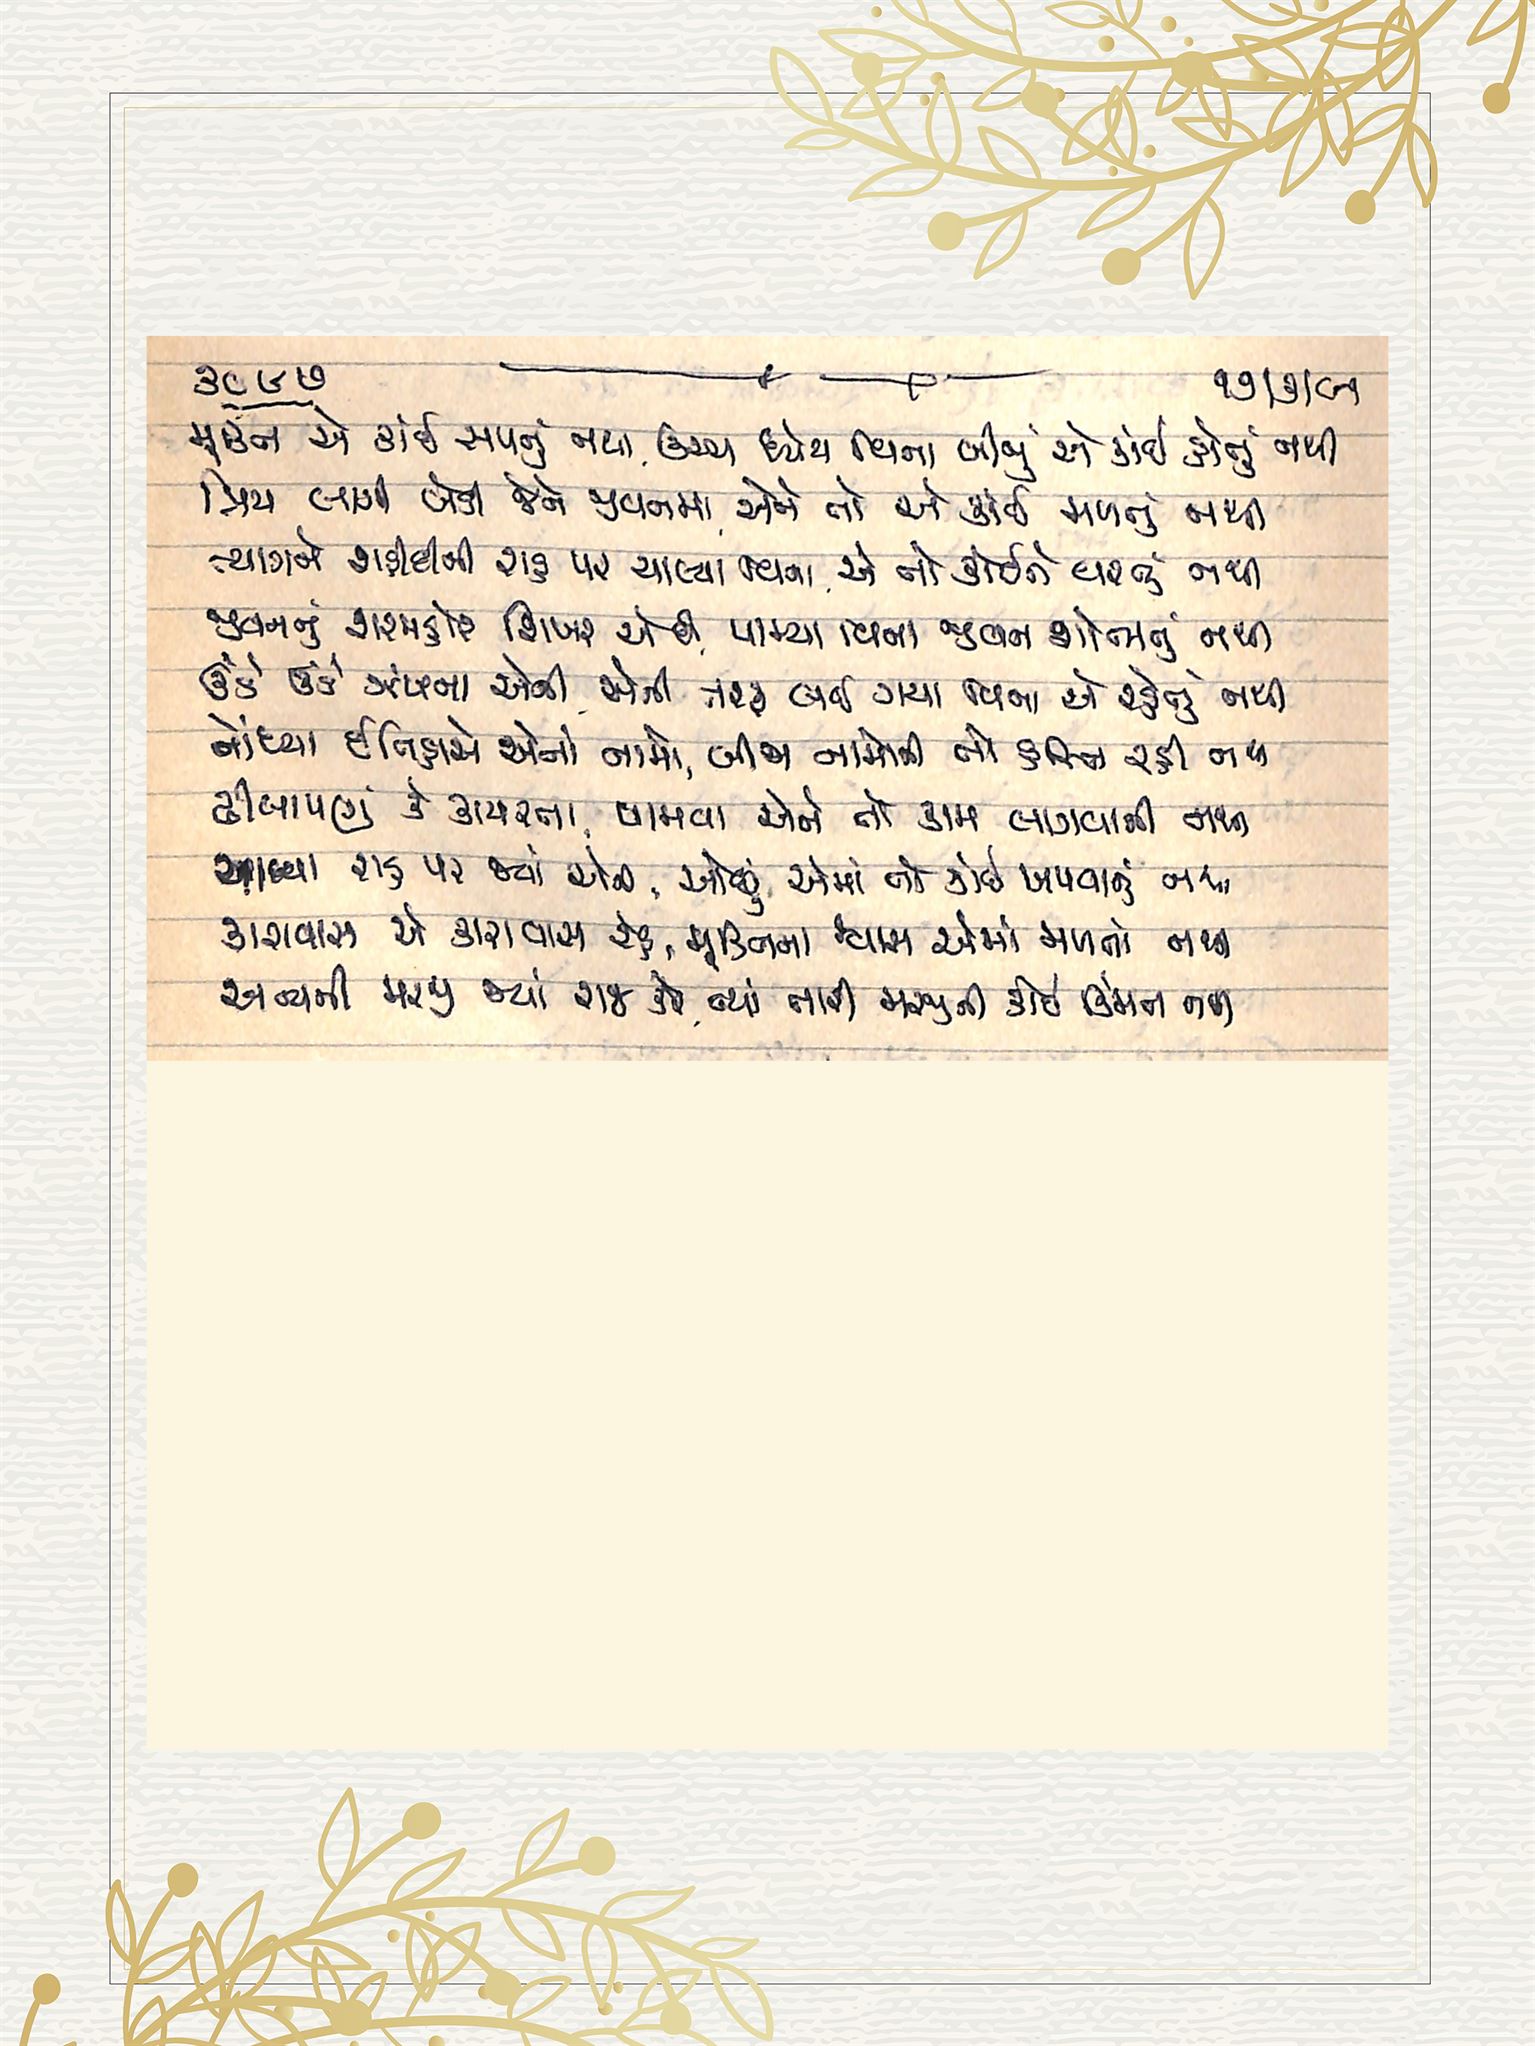 ૩૯૬૭ ૧૭/૭/૯૧
મુક્તિ એ કાંઈ સપનું નથી, ઉચ્ચ ધ્યેય વિના બીજું એ કાંઈ કોનું નથી
પ્રિય લાગી બેઠી જેને જીવનમાં, એને તો એ કાંઈ મળતું નથી
ત્યાગને શહીદીની રાહ પર ચાલ્યા વિના, એ તો કોઈને વરતું નથી
જીવનનું શિખર એ છે, પામ્યા વિના જીવન શોભતું નથી
ઊંડે ઊંડે ઝંખના એની, એની તરફ લઈ ગયા વિના એ રહેતું નથી
નોંધ્યા ઈતિહાસે એનાં નામો, બીજા નામોની તો હસ્તિ રહી નથી
ઢીલાપણું કે કાયરતા, પામવા એને તો કામ લાગવાની નથી
ચાલ્યા રાહ પર જ્યાં એની, ઓછું એમાં તો કાંઈ ખપવાનું નથી
કારાવાસ એ કારાવાસ રહે, મુક્તિના શ્વાસ એમાં મળતો નથી
અન્યની મરજી જ્યાં રાજ કરે, ત્યાં તારી મરજીની કોઈ કિંમત નથી